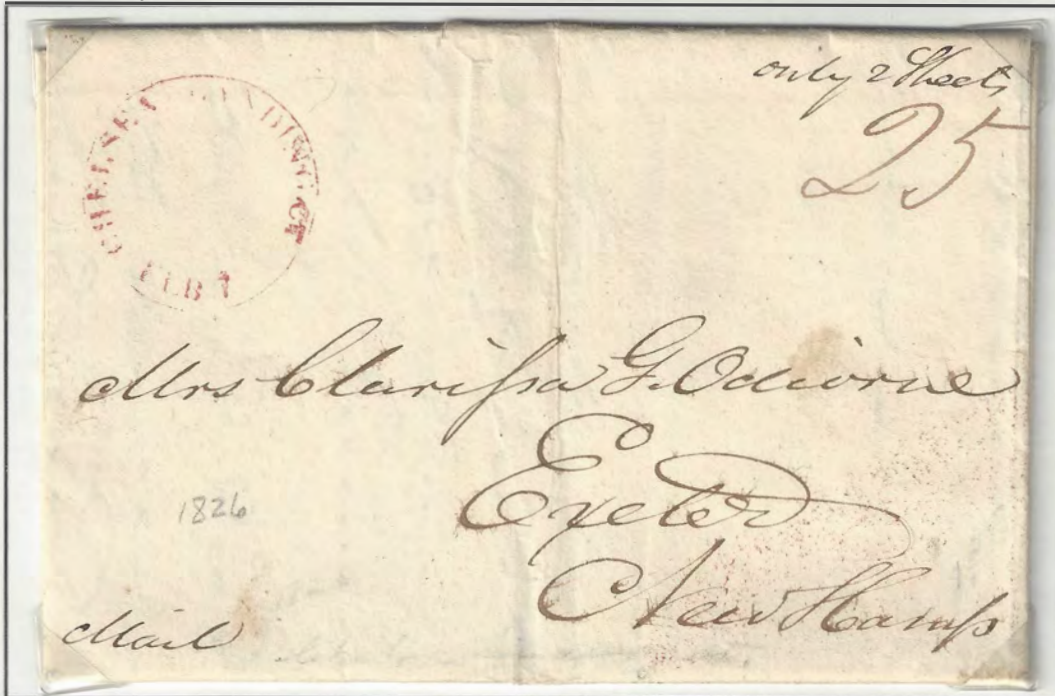 only 2 Sheets
25
CHELSEA LANDING CT
FEB 7
Mrs Clarissa G. Odiorne
Exeter
New Hamp
1826
Mail